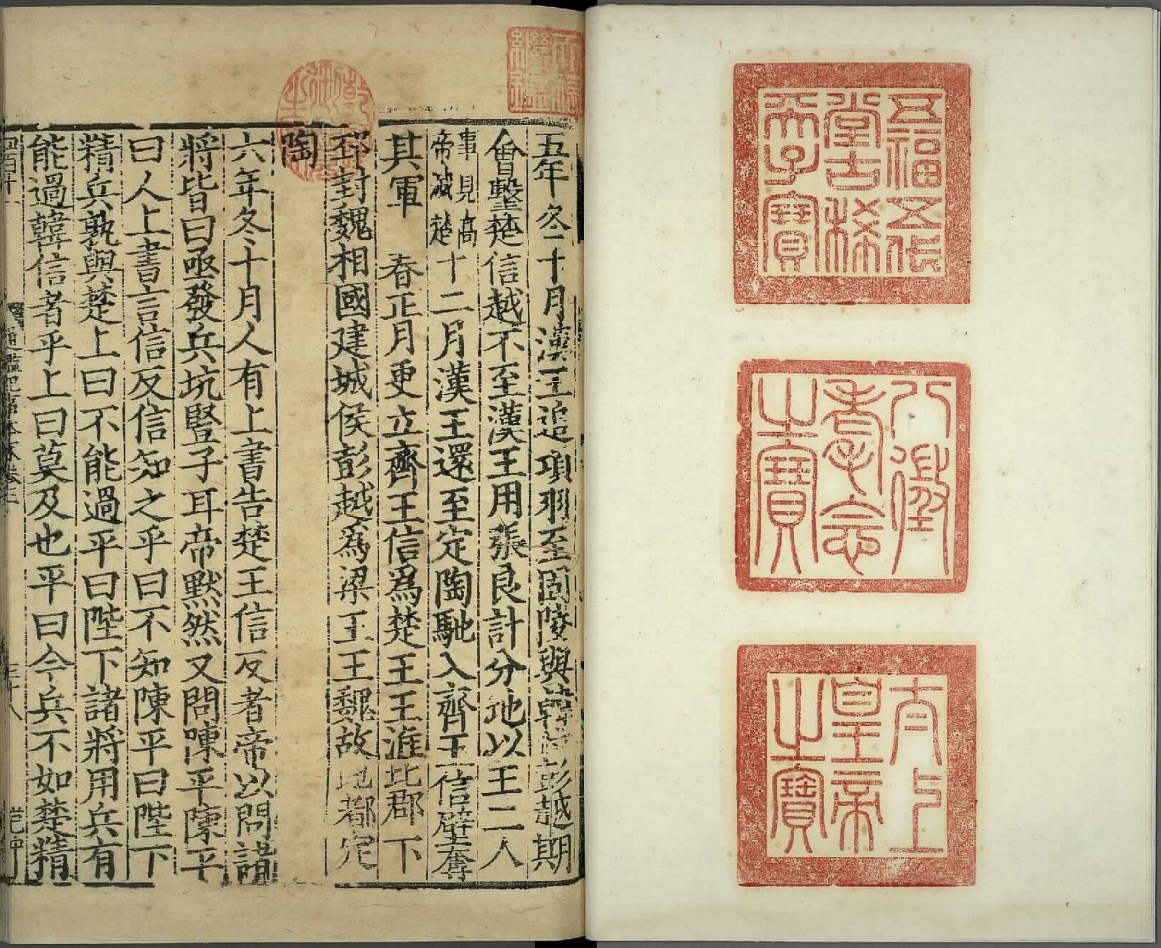 五福五代
堂古稀
天子寶
八徵
耄念
之寶
太上
皇帝
之寶
天祿
繼鑑
乾隆
御覽
之寶
五年冬十月漢王追項羽至固陵與韓信彭越期
會擊楚信越不至漢王用張良計分地以王二人
事見高
帝滅楚
十二月漢王還至定陶馳入齊王信壁奪
其軍 春正月更立齊王信為楚王王淮北郡下
邳封魏相國建城侯彭越為梁王王魏故地都定
陶
六年冬十月人有上書告楚王信反者帝以問諸
將皆曰亟發兵坑豎子耳帝默然又問陳平陳平
曰人上書言信反信知之乎曰不知陳平曰陛下
精兵孰與楚上曰不能過平曰陛下諸將用兵有
能過韓信者乎上曰莫及也平曰今兵不如楚精
四百十
通鑑紀事本末卷二